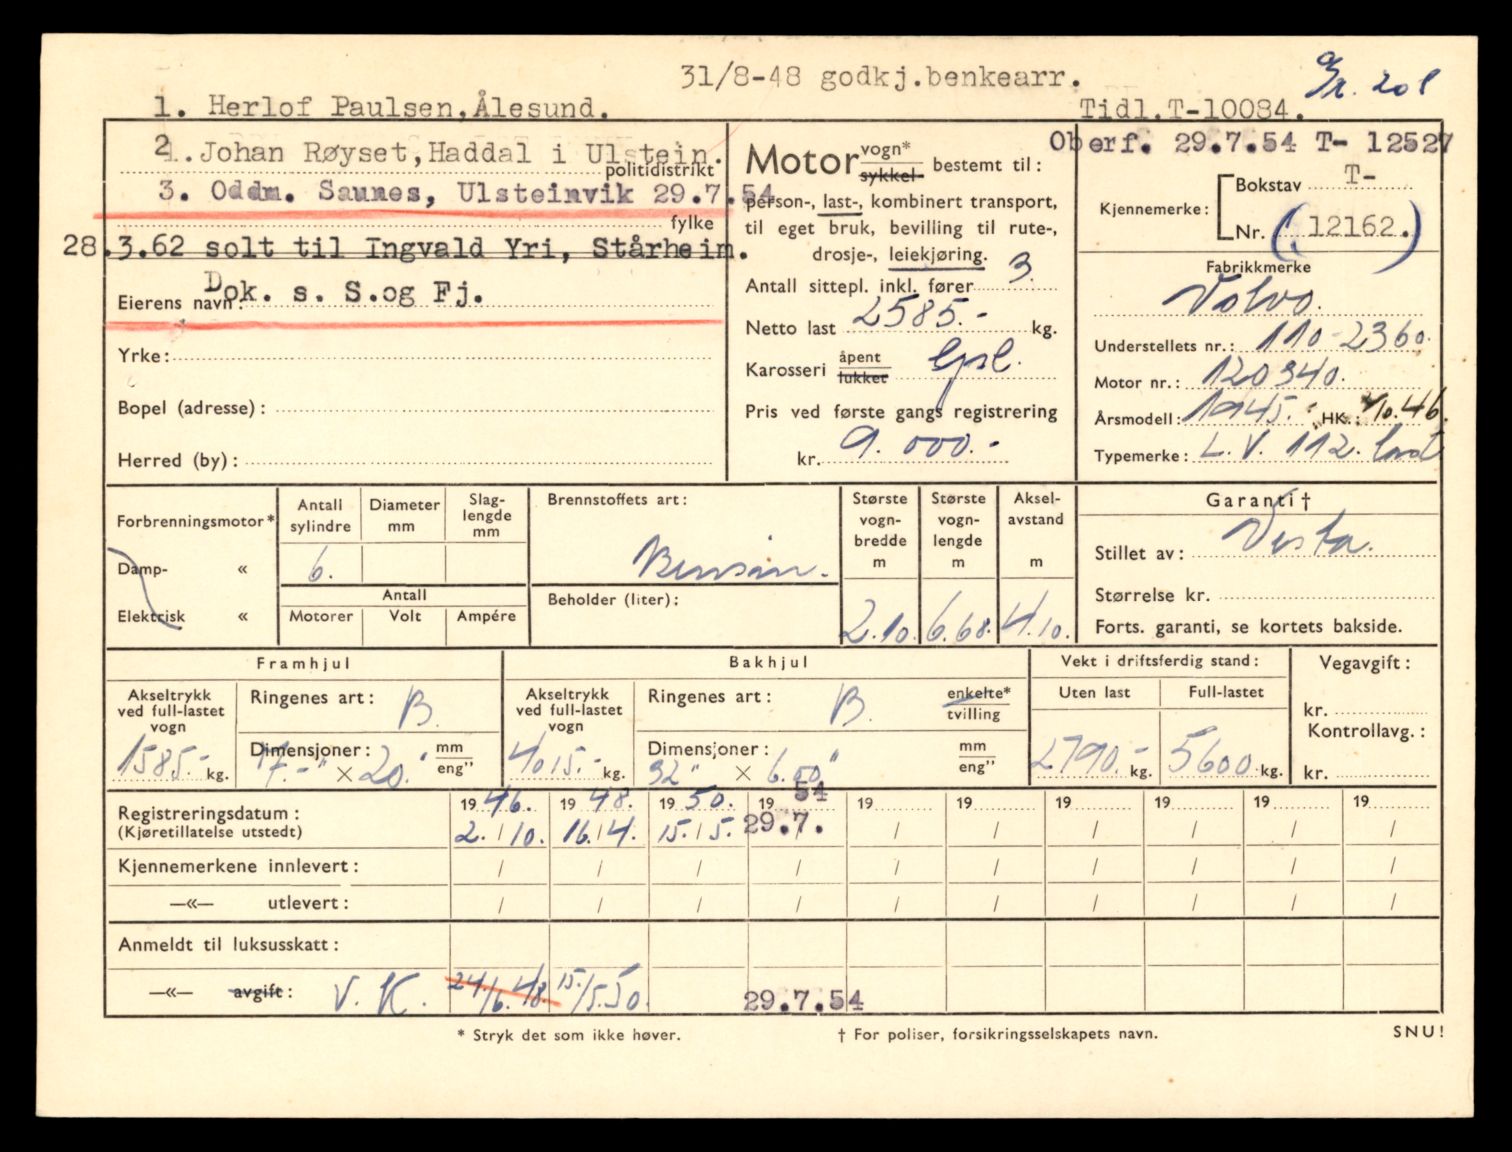 31/8-48 godkj.benkearr.
1. Herlof Paulsen, Ålesund.
Tidl.T-10084.
2. Johan Røyset, Haddal i Ulstein.
politidistrikt
3. Oddm. Saunes, Ulsteinvik 29.7.54
fylke
28.3.62 solt til Ingvald Yri, Stårheim.
Dok. s. S.og Fj.
Eierens navn:
Yrke:
Bopel (adresse):
Herred (by):
Motor vogn* sykkel- bestemt til:
person-, last-, kombinert transport,
til eget bruk, bevilling til rute-,
drosje-, leiekjøring.
Antall sittepl. inkl. fører 3.
Netto last 2585.- kg.
Karosseri åpent lukket
Pris ved første gangs registrering
kr. 9.000.-
Oberf. 29.7.54 T- 12527
Kjennemerke: Bokstav T-
Nr. (12162.)
Fabrikkmerke
Volvo.
Understellets nr.: 110-2360.
Motor nr.: 120340.
Årsmodell: 1945.- HK.:
Typemerke: L.V. 112.
Forbrenningsmotor*
Damp- «
Elektrisk «
Antall sylindre 6.
Diameter mm
Slag-lengde mm
Antall
Motorer Volt Ampére
Brennstoffets art:
Bensin.
Beholder (liter):
Største vogn-bredde m 2.10.
Største vogn-lengde m 6.68.
Aksel-avstand m 4.10.
Garanti †
Stillet av: Vesta.
Størrelse kr.
Forts. garanti, se kortets bakside.
Framhjul
Akseltrykk ved full-lastet vogn 1585.- kg.
Ringenes art: B.
Dimensjoner: × 20." mm eng"
Bakhjul
Akseltrykk ved full-lastet vogn 4015.- kg.
Ringenes art: B. enkelte* tvilling
Dimensjoner: 32" × 6.00" mm eng"
Vekt i driftsferdig stand:
Uten last 2790.- kg.
Full-lastet 5600 kg.
Vegavgift:
kr.
Kontrollavg.:
kr.
Registreringsdatum: 1946. 1948. 1950. 1954 19 19 19 19 19 19
(Kjøretillatelse utstedt) 2./10. 16./4. 15./5. 29.7. / / / / / /
Kjennemerkene innlevert: / / / / / / / / / /
—«— utlevert: / / / / / / / / / /
Anmeldt til luksusskatt:
—«— avgift: V. K. 24/6.48. 15./5.50. 29.7.54
* Stryk det som ikke høver.
† For poliser, forsikringsselskapets navn.
SNU!